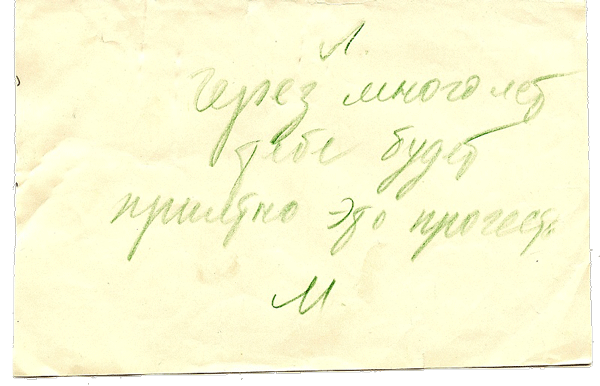 Л.
Через много лет
тебе будет
приятно это прочесть
М.